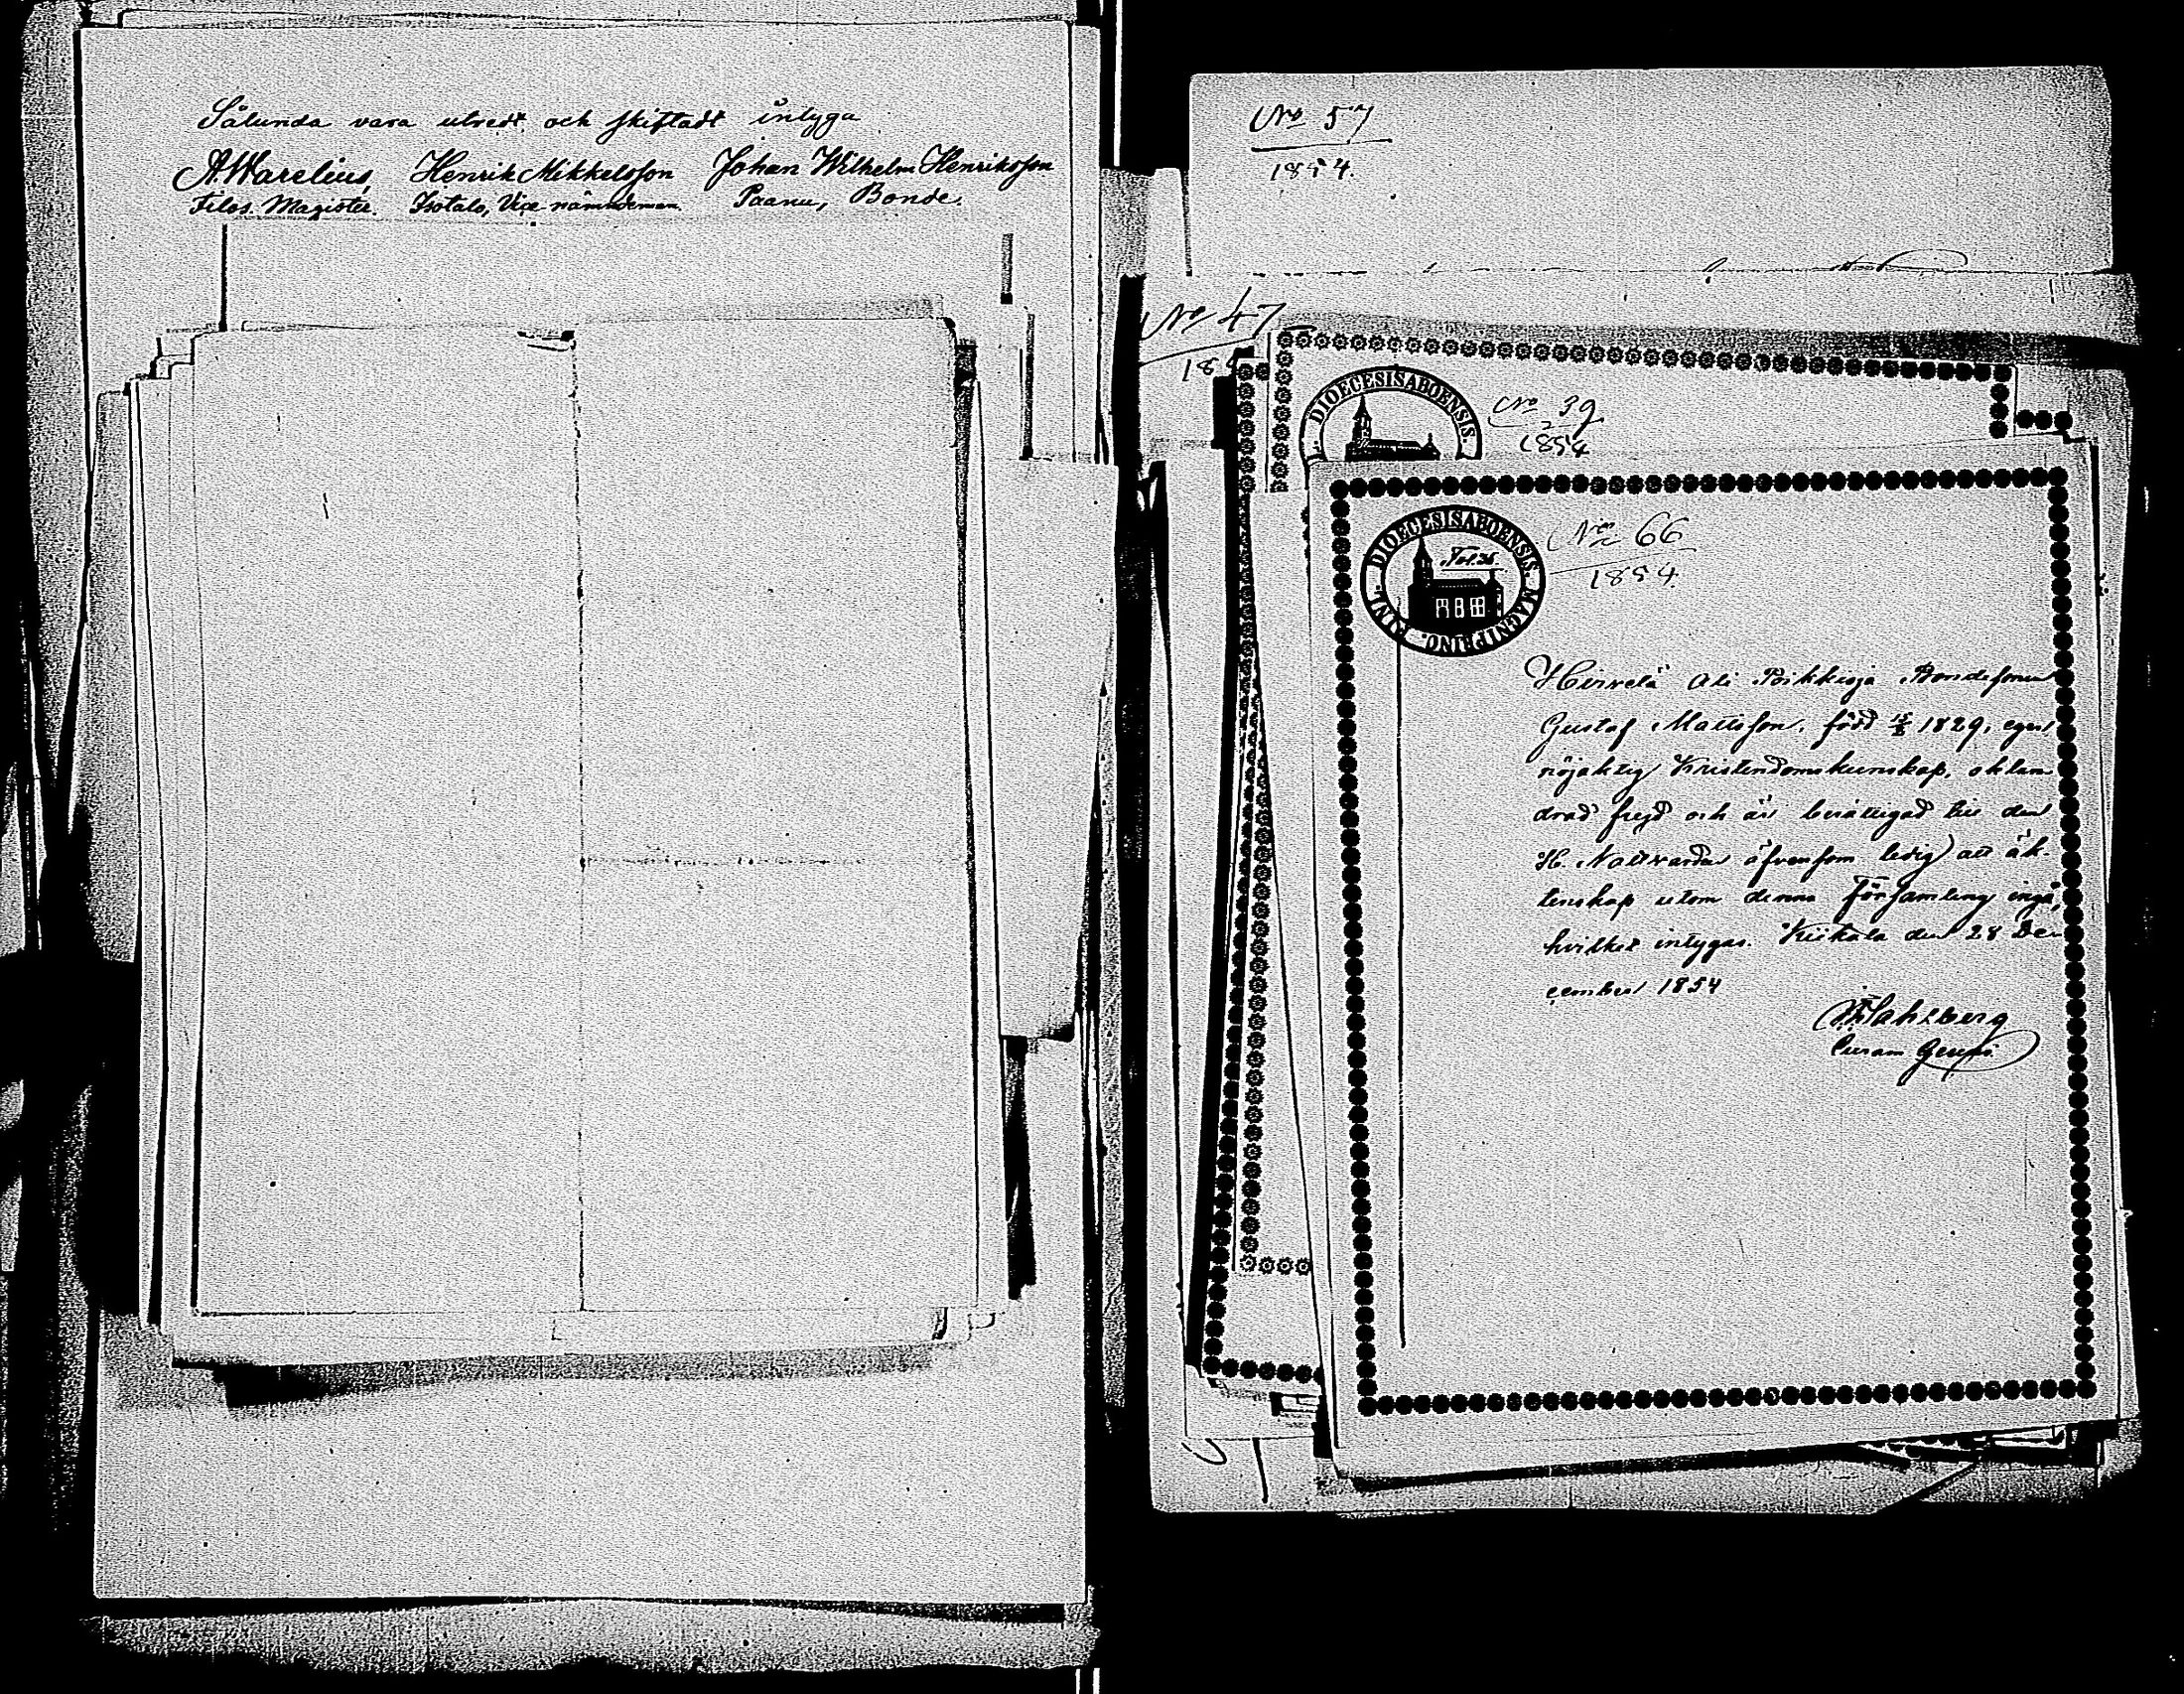 Sålunda vara utredt och skiftadt intyga
A. Warelius, Henrik Mikkelsson Johan Wilhelm Henriksson
Filos. Magister. Isotalo, Vice nämndeman. Paanu, Bonde.
No 57
1854.
No 47
185
DIOECESIS ABOENSIS.
No 39
1854
DIOECESIS ABOENSIS. MAGNI PRINC. FINL.
Fol. 36
No 66
1854.
Hirvelä Ali Poikkioja Bondesonen
Gustaf Mattsson, född 1829, eger
nöjaktig Kristendomskunskap, oklan
drad frejd och är berättigad till den
H. Nattvarden äfvensom ledig att äk-
tenskap utom denna Församling ingå,
hvilket intygas. Kiikala den 28 De
cember 1854
Wahlberg
Curam Gerens.